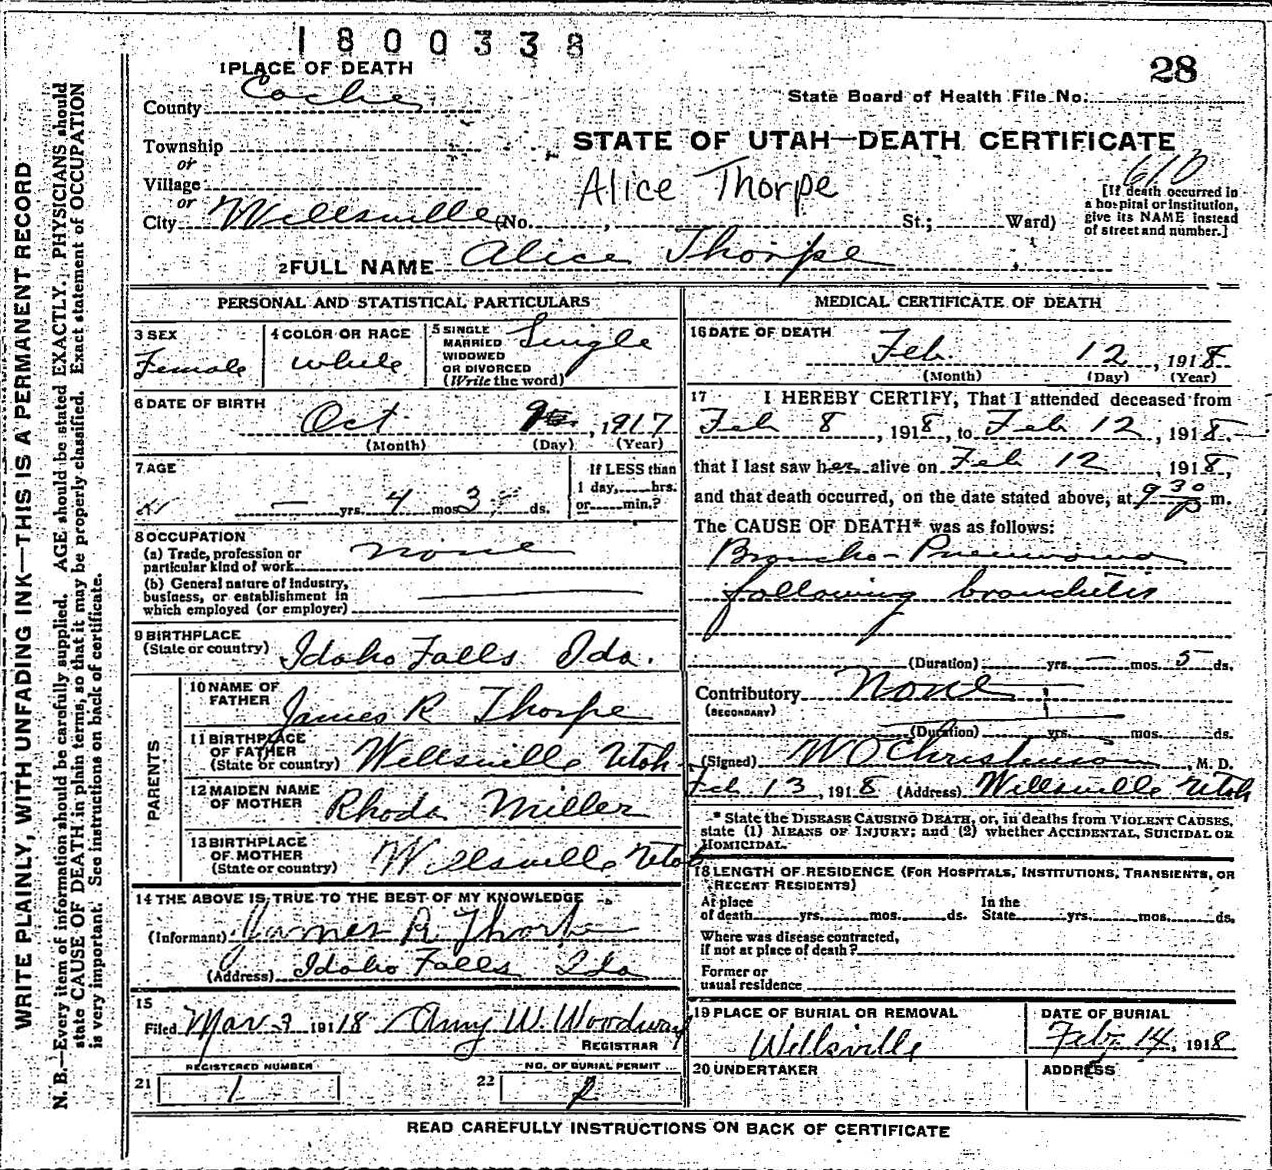 1800338
28
1 PLACE OF DEATH
County Cache
State Board of Health File No:
Township
or
Village
or
City Wellsville (No. , St.; Ward)
STATE OF UTAH—DEATH CERTIFICATE
Alice Thorpe
610
[If death occurred in
a hospital or institution,
give its NAME instead
of street and number.]
2 FULL NAME Alice Thorpe
PERSONAL AND STATISTICAL PARTICULARS
3 SEX
Female
4 COLOR OR RACE
white
5 SINGLE
MARRIED
WIDOWED
OR DIVORCED
(Write the word)
Single
6 DATE OF BIRTH
Oct 9 , 1917
(Month) (Day) (Year)
7 AGE
— yrs. 4 mos 3 ds.
If LESS than
1 day, hrs.
or min.?
8 OCCUPATION
(a) Trade, profession or
particular kind of work none
(b) General nature of industry,
business, or establishment in
which employed (or employer)
9 BIRTHPLACE
(State or country) Idaho Falls Ida.
PARENTS
10 NAME OF
FATHER James R Thorpe
11 BIRTHPLACE
OF FATHER
(State or country) Wellsville Utah
12 MAIDEN NAME
OF MOTHER Rhoda Miller
13 BIRTHPLACE
OF MOTHER
(State or country) Wellsville Utah
14 THE ABOVE IS TRUE TO THE BEST OF MY KNOWLEDGE
(Informant) James R Thorpe
(Address) Idaho Falls Ida
15
Filed Mar 191 18 Amy W. Woodway
REGISTRAR
REGISTERED NUMBER
21 1
NO. OF BURIAL PERMIT
22 2
MEDICAL CERTIFICATE OF DEATH
16 DATE OF DEATH
Feb 12 , 1918
(Month) (Day) (Year)
17 I HEREBY CERTIFY, That I attended deceased from
Feb 8 , 1918, to Feb 12 , 1918
that I last saw her alive on Feb 12 , 1918,
and that death occurred, on the date stated above, at 9 30 P m.
The CAUSE OF DEATH* was as follows:
Broncho-Pneumonia
following bronchitis
(Duration) yrs. — mos. 5 ds.
Contributory None
(SECONDARY)
(Duration) yrs. mos. ds.
(Signed) W O Christenson, M. D.
Feb 13, 1918 (Address) Wellsville Utah
* State the DISEASE CAUSING DEATH, or, in deaths from VIOLENT CAUSES,
state (1) MEANS OF INJURY; and (2) whether ACCIDENTAL, SUICIDAL OR
HOMICIDAL.
18 LENGTH OF RESIDENCE (FOR HOSPITALS, INSTITUTIONS, TRANSIENTS, OR
RECENT RESIDENTS)
At place
of death yrs. mos. ds.
In the
State yrs. mos. ds.
Where was disease contracted,
if not at place of death?
Former or
usual residence
19 PLACE OF BURIAL OR REMOVAL
Wellsville
DATE OF BURIAL
Feb, 14, 1918
20 UNDERTAKER
ADDRESS
READ CAREFULLY INSTRUCTIONS ON BACK OF CERTIFICATE
WRITE PLAINLY, WITH UNFADING INK—THIS IS A PERMANENT RECORD
N. B.—Every item of information should be carefully supplied. AGE should be stated EXACTLY. PHYSICIANS should
state CAUSE OF DEATH in plain terms, so that it may be properly classified. Exact statement of OCCUPATION
is very important. See instructions on back of certificate.